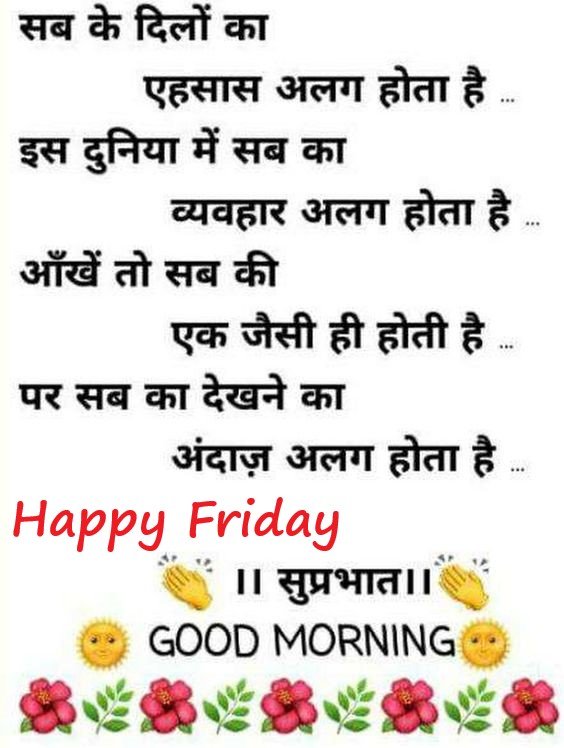 सब के दिलों का
एहसास अलग होता है ...
इस दुनिया में सब का
व्यवहार अलग होता है ...
आँखें तो सब की
एक जैसी ही होती है ...
पर सब का देखने का
अंदाज़ अलग होता है ...
Happy Friday
।। सुप्रभात।।
GOOD MORNING